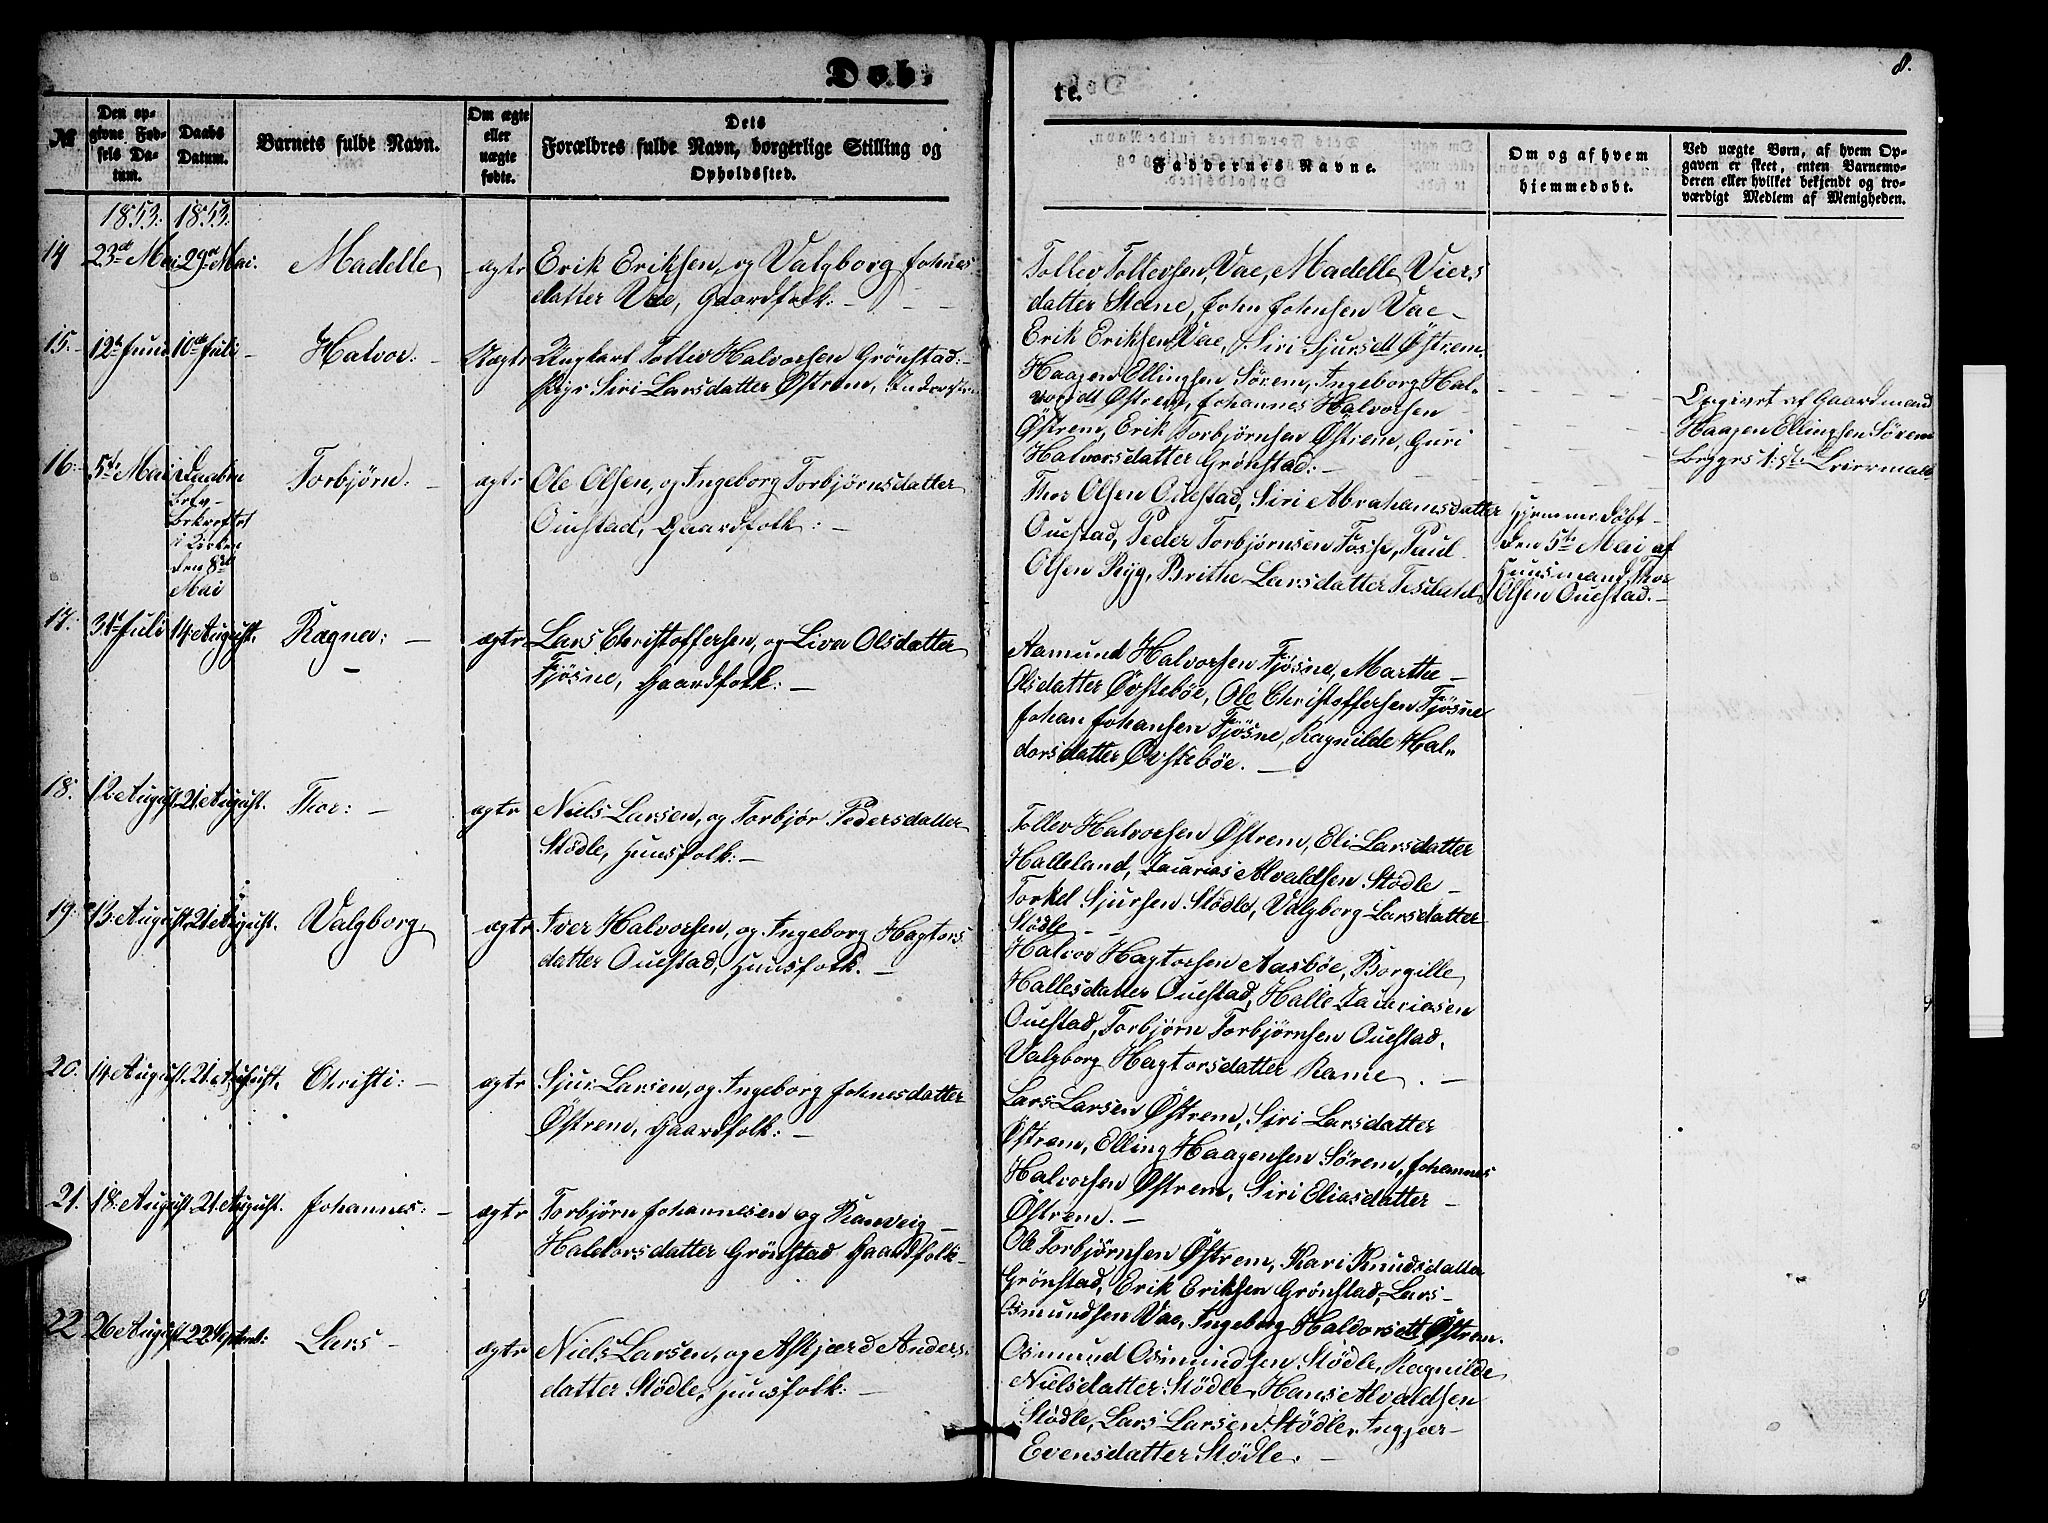 Døb,
te.
8.
№
Den op-
givne Fød-
sels Da-
tum.
Daabs
Datum.
Barnets fulde Navn.
Om ægte
eller
uægte
fødte.
Dets
Forældres fulde Navn, borgerlige Stilling og
Opholdssted.
Faddernes Navne.
Om og af hvem
hjemmedøbt.
Ved uægte Børn, af hvem Op-
gaven er skeet, enten Barnemo-
deren eller hvilket bekjendt og tro-
værdigt Medlem af Menigheden.
1853. 1853.
14 23de Mai 29de Mai. Madelle ægte Erik Eriksen, og Valgborg Johnes
datter Vae, Gaardfolk: -
Tollev Tollevsen, Vae, Madelle Viers
datter Stene, John Johnsen Vae -
Erik Eriksen Vae, Siri Sjursdt Østrem.
15. 12te Juni 10de Juli Halvor: - Uægte Ungkarl Tollev Halvorsen Grønstad: -
Pige Siri Larsdatter Østrem,
Haagen Ellingsen Sørem, Ingeborg Hal-
vorsdt Østrem, Johannes Halvorsen
Østrem, Erik Torbjørnsen Østrem, Guri
Halvorsdatter Grønstad: -
Opgivet af Gaardmand
Haagen Ellingsen Sørem
begges 1ste Leiermaal
16. 5te Mai Daaben
bekræftet
i Kirken
den 8de
Mai
Torbjørn: - ægte Ole Olsen, og Ingeborg Torbjørnsdatter
Ouestad, Gaardfolk: -
Thor Olsen Ouestad, Siri Abrahamsdatter
Ouestad, Peder Torbjørnsen Fosse, Poul
Olsen Ryg, Brithe Larsdatter Tesdahl
Hjemmedøbt
den 5te Mai af
Huusmand Thor
Olsen Ouestad. -
17. 31te Juli 14 August. Ragna: - ægte Lars Christoffersen, og Liva Olsdatter
Fjøsne, Gaardfolk: -
Aamund Halvorsen Fjøsne, Marthe -
Olsdatter Øvstebøe, Ole Christoffersen Fjøsne
Johan Johansen Fjøsne, Ragnilde Hal-
dorsdatter Øvstebøe. -
18. 12 August. 21 August. Thor: - ægte Niels Larsen, og Torbjør Pedersdatter
Stødle, Huusfolk: -
Tollev Halvorsen Østrem, Eli Larsdatter
Halleland, Zacarias Alvaldsen Stødle -
Torkel Sjursen Stødle, Valgborg Larsdatter
Stødle -
19. 13. August. 21 August. Valgborg, ægte Iver Halvorsen, og Ingeborg Hagtors
datter Ouestad, Huusfolk. -
Halvor Hagtorsen Aasbøe, Borgille
Hallesdatter Ouestad, Halle Zacariasen
Ouestad, Torbjørn Torbjørnsen Ouestad,
Valgborg Hagtorsdatter Rame. -
20. 14 August. 21. August. Christi: - ægte Sjur Larsen, og Ingeborg Johnesdatter
Østrem, Gaardfolk: -
Lars Larsen Østrem, Siri Larsdatter
Østrem, Elling Haagensen Sørem, Johannes
Halvorsen Østrem, Siri Eliasdatter -
Østrem. -
21. 18. August. 21. August. Johannes: - ægte Torbjørn Johannesen og Ranveig -
Haldorsdatter Grønstad Gaardfolk -
Ole Torbjørnsen Østrem, Kari Knudsdatter
Grønstad, Erik Eriksen Grønstad, Lars -
Osmundsen Vae, Ingeborg Haldorsdtt Østrem.
22 26 August 22 Septemb: Lars - ægte Niels Larsen, og Askjærd Anders-
datter Stødle, Huusfolk: -
Osmund Osmundsen Stødle, Ragnilde
Nielsdatter Stødle, Hans Alvaldsen
Stødle, Lars Larsen Stødle, Ingjær -
Evensdatter Stødle. -